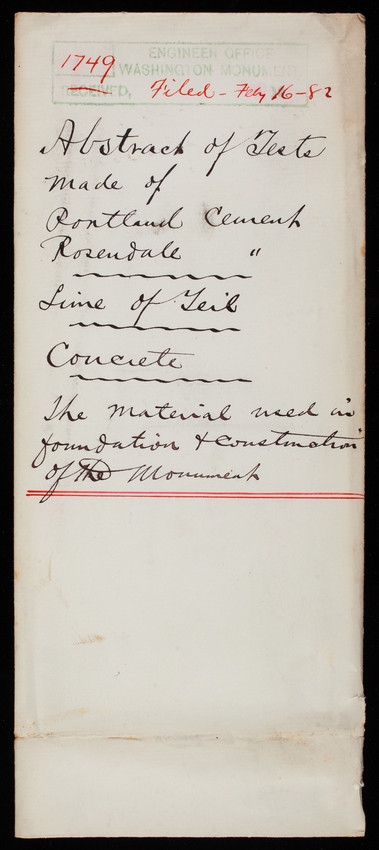 1749
ENGINEER OFFICE
WASHINGTON MONUMENT
RECEIVED, Filed - Feby 16 - 82
Abstract of Tests
made of
Portland Cement
Rosendale "
Lime of Teil
Concrete
The material used in
foundation & construction
of the Monument